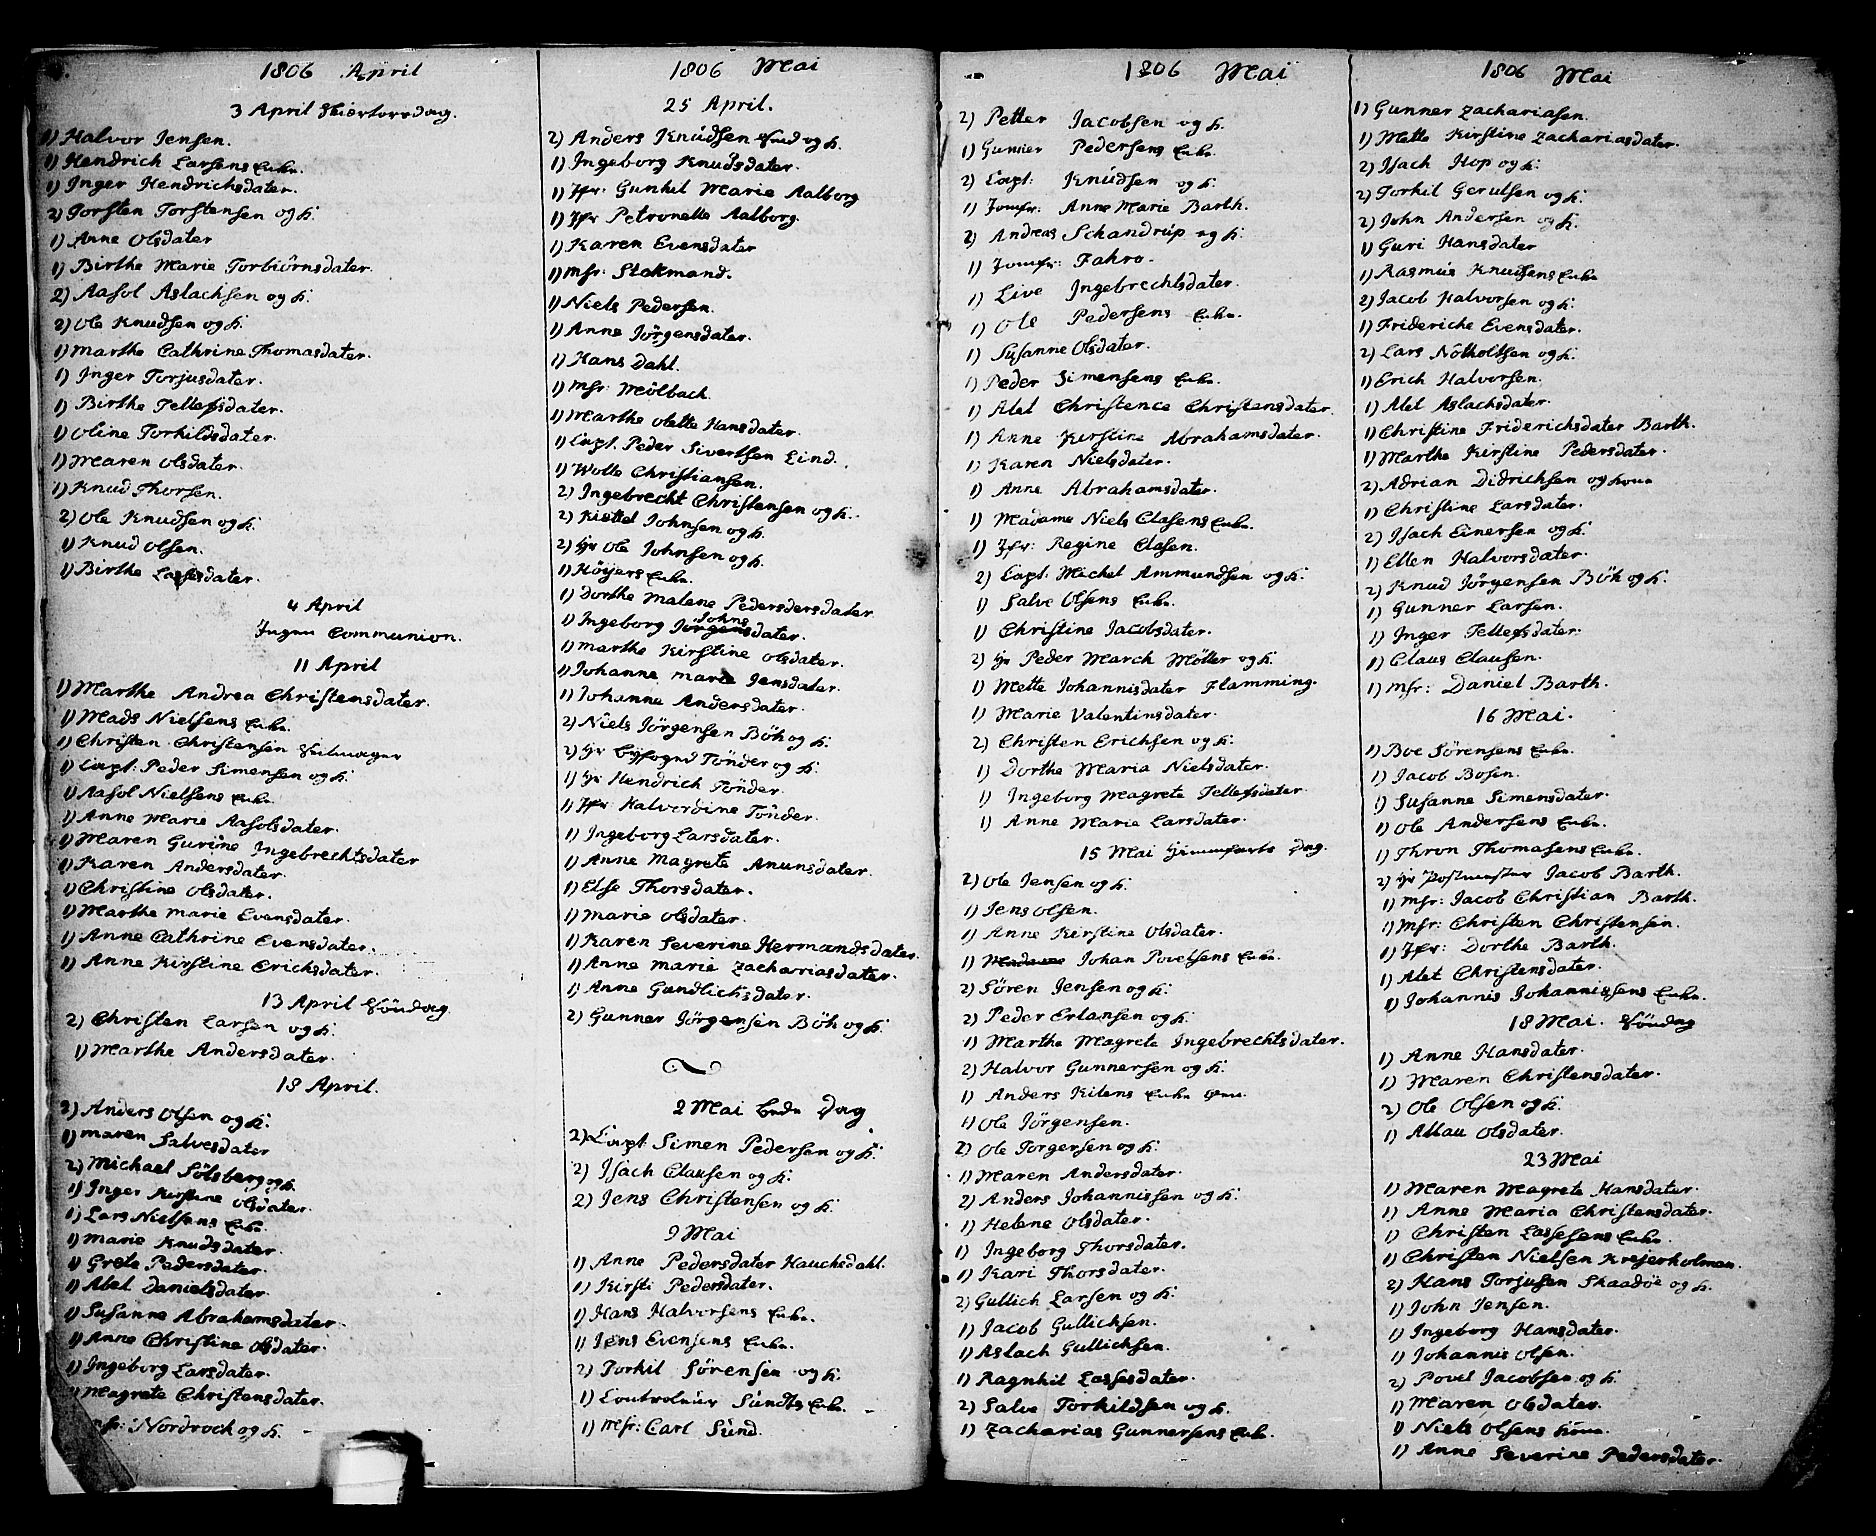 1806 April
3 April Skiertorsdag.
1) Halvor Jensen.
1) Hendrich Larsens Enke.
1) Inger Hendrichsdater.
2) Torsten Torstensen og K.
1) Anne Olsdater
1) Birthe Marie Torbiörnsdater.
2) Aasol Aslachsen og K.
2) Ole Knudsen og K.
1) Marthe Cathrine Thomasdater.
1) Inger Torjusdater.
1) Birthe Tellefsdater.
1) Oline Torkildsdater.
1) Maren Olsdater.
1) Knud Thorsen.
2) Ole Knudsen og K.
1) Knud Olsen.
1) Birthe Lassesdater.
4 April
Ingen Communion.
11 April
1) Marthe Andrea Christensdater.
1) Mads Nielsens Enke.
1) Christen Christensen
1) Capt: Peder Simensen og K.
1) Aasol Nielsens Enke.
1) Anne Marie Aasolsdater.
1) Maren Gurine Ingebrechtsdater
1) Karen Andersdater.
1) Christine Olsdater.
1) Marthe Marie Evensdater.
1) Anne Cathrine Evensdater.
1) Anne Kirstine Erichsdater.
13 April Söndag.
2) Christen Larsen og K.
1) Marthe Andersdater.
18 April.
2) Anders Olsen og K.
1) Maren Salvesdater
2) Michael Sölsberg og K.
1) Inger Kirstine Olsdater.
1) Lars Nielsens Enke.
1) Marie Knudsdater.
1) Grete Pedersdater.
1) Abel Danielsdater.
1) Susanne Abrahamsdater.
1) Anne Christine Olsdater.
1) Ingeborg Larsdater.
1) Magrete Christensdater.
Msr: Nordrock og K.
1806 Mai
25 April.
2) Anders Knudsen Sund og K.
1) Ingeborg Knudsdater.
1) Jfr: Gunhil Marie Aalborg
1) Jfr Petronelle Aalborg.
1) Karen Evensdater
1) Msr: Stokmand.
1) Niels Pedersen.
1) Anne Jörgensdater.
1) Hans Dahl.
1) Msr: Mölbach.
1) Marthe Olette Hansdater.
1) Capt. Peder Sivertsen Lind.
1) Wolle Christiansen.
2) Ingebrecht Christensen og K.
2) Kittel Johnsen og K.
2) Hr Ole Johnsen og K.
1) Höyers Enke.
1) Dorthe Malene Pedersdersdater
1) Ingeborg Johnsdater.
1) Marthe Kirstine Olsdater.
1) Johanne Marie Jensdater.
1) Johanne Andersdater.
2) Niels Jörgensen Böh og K.
2) Hr Byfoged Tönder og K.
1) Hr Hendrich Tönder.
1) Jfr Halverdine Tönder.
1) Ingeborg Larsdater.
1) Anne Magrete Anunsdater.
1) Else Thorsdater.
1) Marie Olsdater.
1) Karen Severine Hermandsdater.
1) Anne Marie Zachariasdater.
1) Anne Gundlichsdater.
2) Gunner Jörgensen Böh og K.
2 Mai Bede Dag
2) Capt Simen Pedersen og K.
2) Isach Clausen og K.
2) Jens Christensen og K.
9 Mai
1) Anne Pedersdater Hauchedahl.
1) Kirsti Pedersdater.
1) Hans Halvorsens Enke.
1) Jens Evensens Enke.
2) Torkil Sörensen og K.
1) Contreleur Sundts Enke.
1) Msr: Carl Sund.
1806 Mai
2) Petter Jacobsen og K.
1) Gunner Pedersens Enke.
2) Capt: Knudsen og K.
1) Jomfr: Anne Marie Barth.
2) Andreas Schandrup og K.
1) Jomfr: Fahro.
1) Live Ingebrechtsdater.
1) Ole Pedersens Enke.
1) Susanne Olsdater.
1) Peder Simensens Enke.
1) Alet Christence Christensdater.
1) Anne Kirstine Abrahamsdater.
1) Karen Nielsdater.
1) Anne Abrahamsdater.
1) Madame Niels Clasens Enke.
1) Jfr: Regine Clasen.
2) Capt: Michel Ammundsen og K.
1) Salve Olsens Enke.
1) Christine Jacobsdater.
2) Hr Peder March Möller og K.
1) Mette Johannisdater Flamming.
1) Marie Valentinsdater.
2) Christen Erichsen og K.
1) Dorthe Maria Nielsdater.
1) Ingeborg Magrete Tellefsdater.
1) Anne Marie Larsdater.
15 Mai Himmelfarts Dag.
2) Ole Jensen og K.
1) Jens Olsen.
1) Anne Kirstine Olsdater.
1) Madame Johan Povelsens Enke.
2) Sören Jensen og K.
2) Peder Erlansen og K.
1) Marthe Magrete Ingebrechtsdater.
2) Halvor Gunnersen og K.
1) Anders Kilens Enke
1) Ole Jörgensen.
2) Ole Torgersen og K.
1) Maren Andersdater.
2) Anders Johannissen og K.
1) Helene Olsdater.
1) Ingeborg Thorsdater.
1) Kari Thorsdater.
2) Gullich Larsen og K.
1) Jacob Gullichsen.
1) Aslach Gullichsen.
1) Ragnhil Lassesdater.
2) Salve Torkildsen og K.
1) Zacharias Gunnersens Enke.
1806 Mai
1) Gunner Zachariasen.
1) Mette Kirstine Zachariasdater.
2) Isach Hop og K.
2) Torkil Gerulsen og K.
2) John Andersen og K.
1) Guri Hansdater
1) Rasmus Knudsens Enke
2) Jacob Halvorsen og K.
1) Frideriche Evensdater.
2) Lars Notholtsen og K.
1) Erich Halvorsen.
1) Alet Aslachsdater.
1) Christine Friderichsdater Barth.
1) Marthe Kirstine Pedersdater.
2) Adrian Didrichsen og Kone
1) Christine Larsdater.
2) Isach Einersen og K.
1) Ellen Halvorsdater.
2) Knud Jörgensen Böh og K.
1) Gunner Larsen.
1) Inger Tellefsdater.
1) Claus Clausen.
1) Msr: Daniel Barth.
16 Mai.
1) Boe Sörensens Enke.
1) Jacob Bosen.
1) Susanne Simensdater.
1) Ole Andersens Enke.
1) Thron Thomasens Enke.
2) Hr Postmester Jacob Barth.
1) Msr: Jacob Christian Barth.
1) Msr: Christen Christensen.
1) Jfr: Dorthe Barth.
1) Alet Christensdater.
1) Johannis Johannissens Enke.
18 Mai. Söndag
1) Anne Hansdater.
1) Maren Christensdater.
2) Ole Olsen og K.
1) Allau Olsdater.
23 Mai
1) Maren Magrete Hansdater.
1) Anne Maria Christensdater.
1) Christen Lassesens Enke.
1) Christen Nielsen Krejerholmen.
2) Hans Torjusen Skaadöe og K.
1) John Jensen.
1) Ingeborg Hansdater.
1) Johannis Olsen.
2) Povel Jacobsen og K.
1) Maren Olsdater.
1) Niels Olsens Kone.
1) Anne Severine Pedersdater.